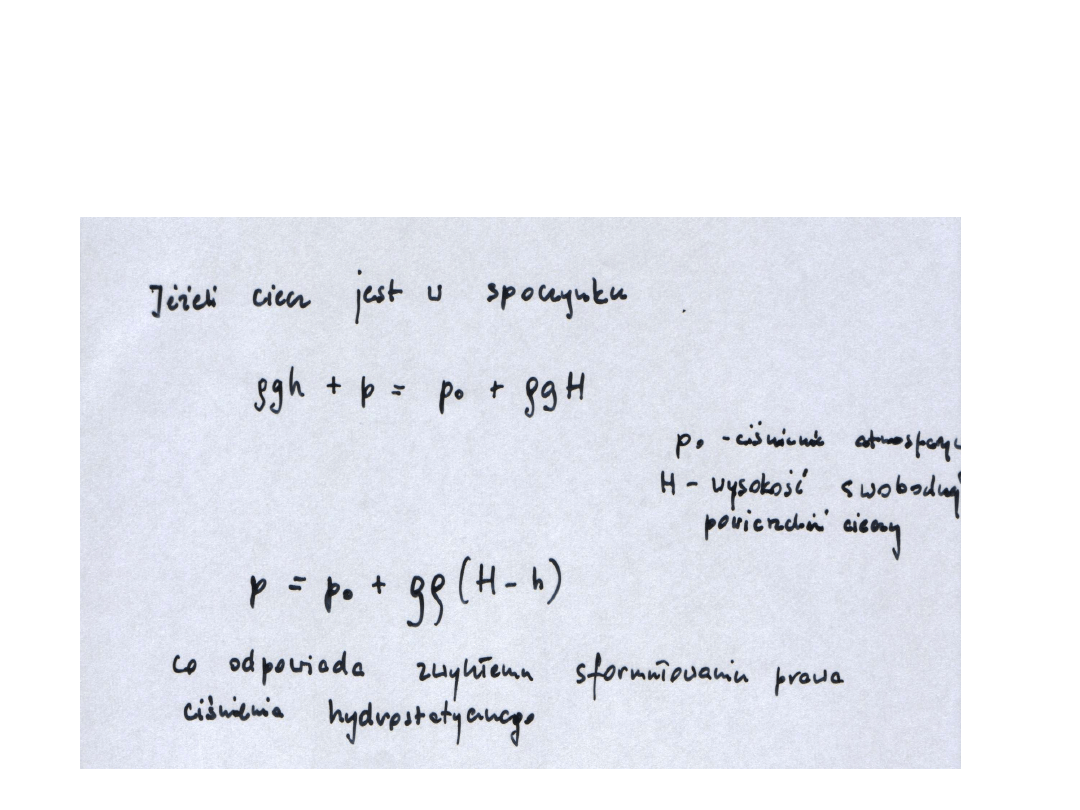 Jeżeli ciecz jest w spoczynku
ρgh + p = p₀ + ρgH
p₀ - ciśnienie atmosfery
H - wysokość swobodnej
powierzchni cieczy
p = p₀ + gρ(H - h)
co odpowiada zwykłemu sformułowaniu prawa
ciśnienia hydrostatycznego